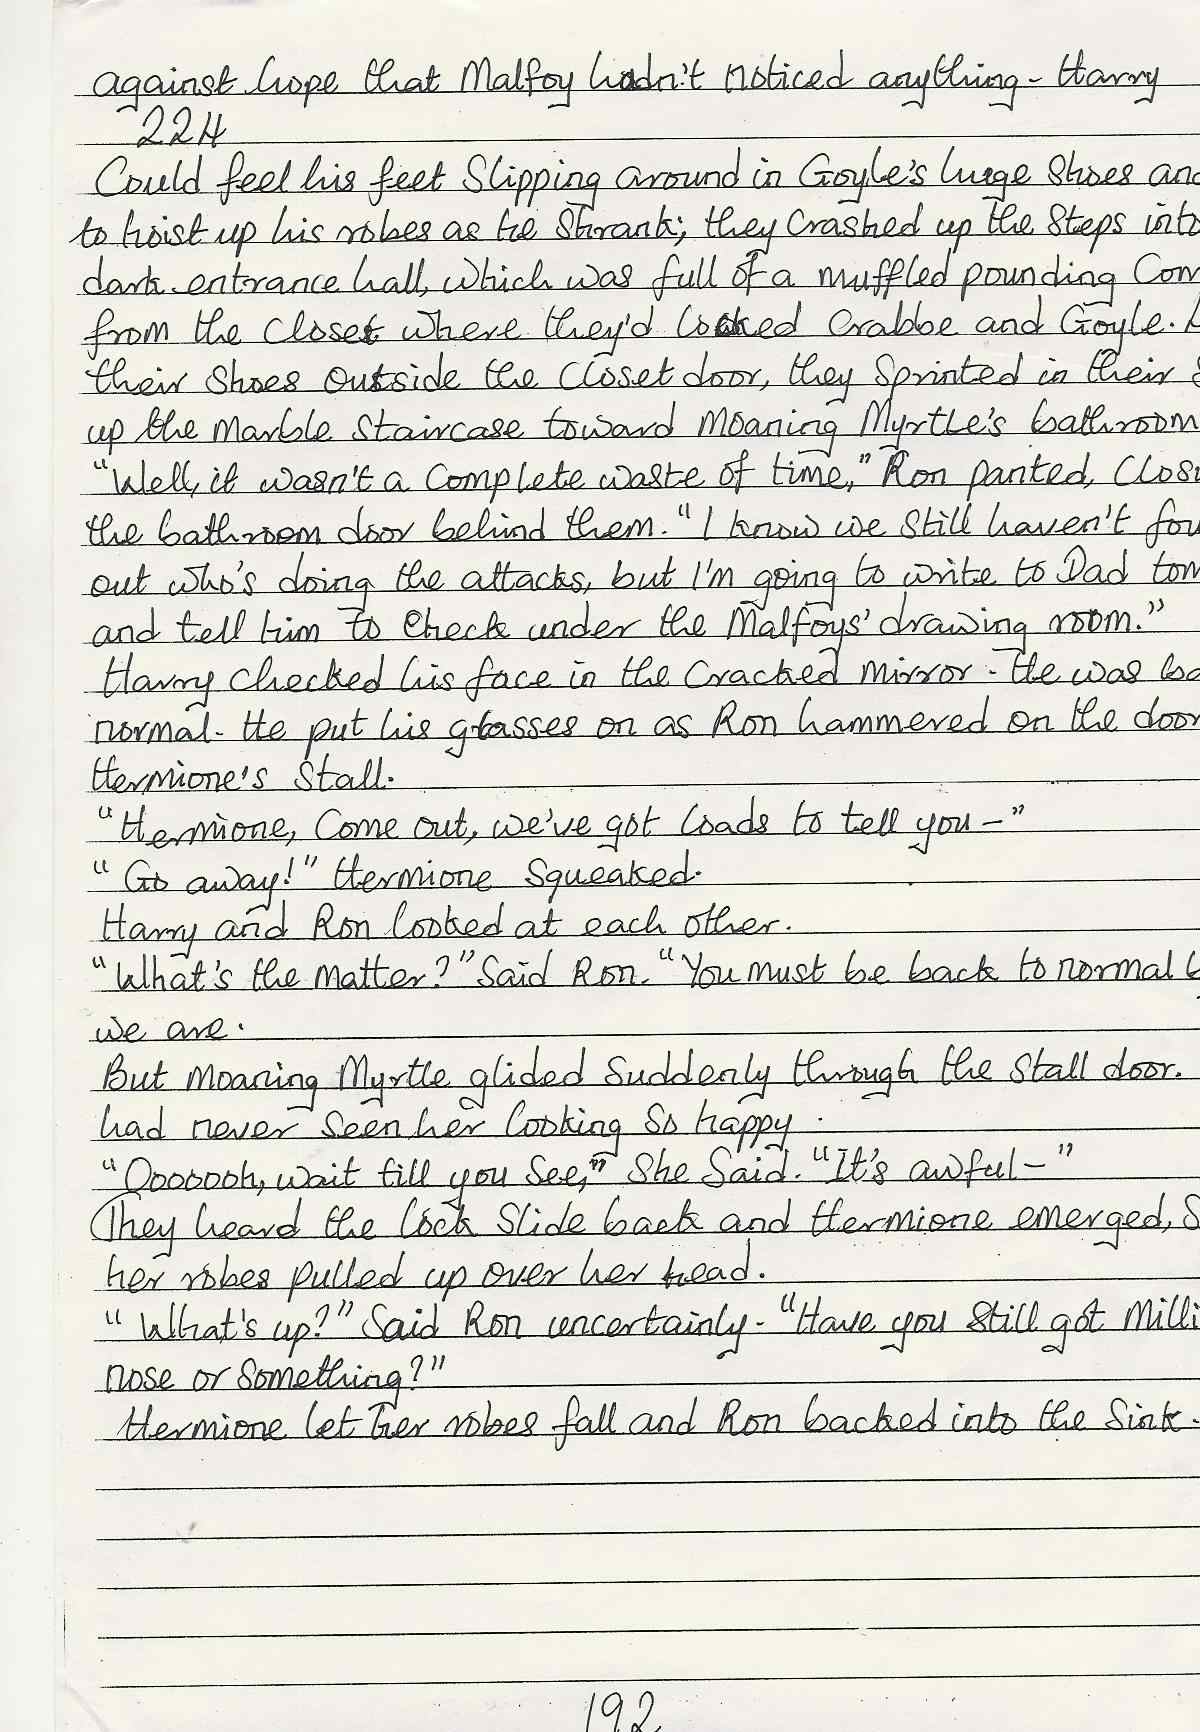 against hope that Malfoy hadn't noticed anything - Harry
224
Could feel his feet Slipping around in Goyle's huge Shoes and
to hoist up his robes as he Shrank; they Crashed up the Steps into
dark entrance hall, which was full of a muffled pounding Com
from the Closet where they'd locked Crabbe and Goyle.
their Shoes Outside the Closet door, they Sprinted in their S
up the Marble Staircase toward Moaning Myrtle's bathroom
"Well, it wasn't a Complete waste of time," Ron panted, Closi
the bathroom door behind them. "I know we Still haven't fou
out who's doing the attacks, but I'm going to write to Dad tom
and tell him to Check under the Malfoys' drawing room."
Harry Checked his face in the Cracked mirror. He was ba
normal. He put his glasses on as Ron hammered on the door
Hermione's Stall.
"Hermione, Come out, we've got loads to tell you -"
"Go away!" Hermione Squeaked.
Harry and Ron looked at each other.
"What's the Matter?" Said Ron. "You must be back to normal b
we are.
But Moaning Myrtle glided Suddenly through the Stall door.
had never Seen her looking So happy.
"Ooooooh, wait till you See," She Said. "It's awful -"
They heard the lock Slide back and Hermione emerged, S
her robes pulled up over her head.
"What's up?" Said Ron uncertainly. "Have you Still got Milli
nose or Something?"
Hermione let her robes fall and Ron backed into the Sink.
192